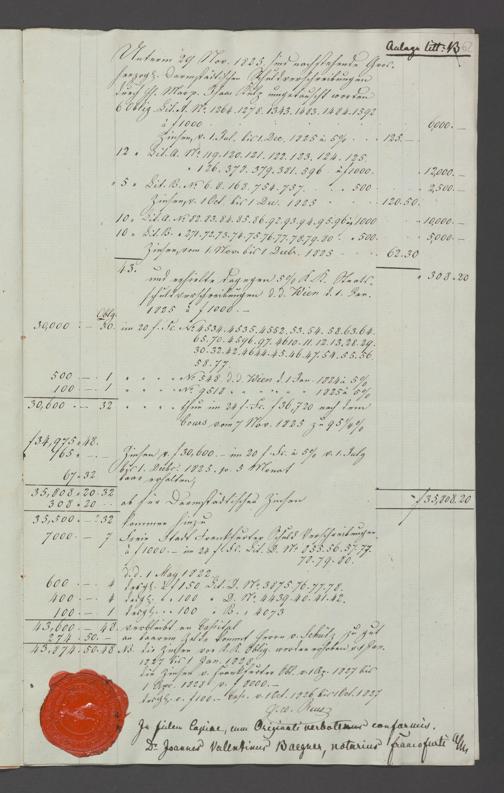 Anlage Litt: B
62
Unterm 29 Nov. 1825 sind nachstehende Gros-
herzogl. Darmstädtischen Schuldverschreibungen
durch
6 Oblig. Lit. A. No. 1264. 1278. 1343. 1483. 1484. 1592
à f 1000 6,000.—
Zinsen, v. 1 Jul. bis 1 Dec. 1825 à 5% 125.—
12 " Lit. A. No. 119. 120. 121. 122. 123. 124. 125.
126. 378. 379. 381. 596 à f 1000 12,000.—
5 " Lit. B. No 6. 8. 168. 754. 757. 500 2,500.—
Zinsen, v. 1 Oct. bis 1 Dec. 1825 120.50.
10 " Lit. A. No 82. 83. 84. 85. 86. 92. 93. 94. 95. 96 à 1000 10,000.—
10 " Lit. B. " 271. 72. 73. 74. 75. 76. 77. 78. 79. 80 500. 5,000.—
Zinsen, vom 1 Nov. bis 1 Decb. 1825 62.30
43. " 308.20
und erhielte dagegen 5% K.K. Staats-
schuldverschreibungen d.d. Wien d. 1 Jan.
1825 à f 1000.—
Oblg.
30,000 30. im 20 f. Fc. No 4534. 4535. 4552. 53. 54. 58. 63. 64.
65. 70. 4596. 97. 4610. 11. 12. 13. 28. 29.
30. 32. 42. 4644. 45. 46. 47. 54. 55. 56
58. 77.
500 — 1 No 548 d.d. Wien d. 1 Jan. 1824 à 5%
100 — 1 No 9512 1825 à 5%
30,600 — 32 thun im 24 f. Fc. f 36,720 nach dem
Cours vom 7 Nov. 1825 zu 95 %
f 34,975.48.
765 " — Zinsen v. f 30,600.— im 20 f. Fc. à 5% v. 1 July
bis 1 Decbr. 1825. 5 Monat
67.32 baar erhalten,
35,808.20. 32 f 35,808.20
308.20 ab für Darmstädtisches Zinsen
35,500.— 32 kommen hinzu
7000.— 7 Freie Stadt Frankfurter Schuld Verschreibungen
à f 1000.— im 24 f. Fc. Lit. D. No. 855. 56. 57. 77.
78. 79. 80.
d.d. 1 May 1822.
600 — 4 desgl. à f 150 Lit. D. No. 3875. 76. 77. 78.
400 — 4 desgl. " 100 " D. No. 4439. 40. 41. 42.
100 — 1 desgl. " 100 " B. " 4073
43,600.— 48. verbleibt an Capital
274.50.— an baarem Gelde kommt Herrn v. Schütz zu gut
43,874.50. 48 NB. die Zinsen von K.K. Oblig. worden erhoben v. 1 Jan.
1827 bis 1 Jan. 1828,
die Zinsen v. Frankfurter Obl. v. 1 Apr. 1827 bis
1 Apr. 1828 v. f 8000.—
desgl. v. f 100.— v. 1 Oct. 1826 bis 1 Oct. 1827
In fidem Copiae, cum Originali verbotenus conformis.
Dr. Joannes Valentinus Baegner, notarius francofurti a/M.